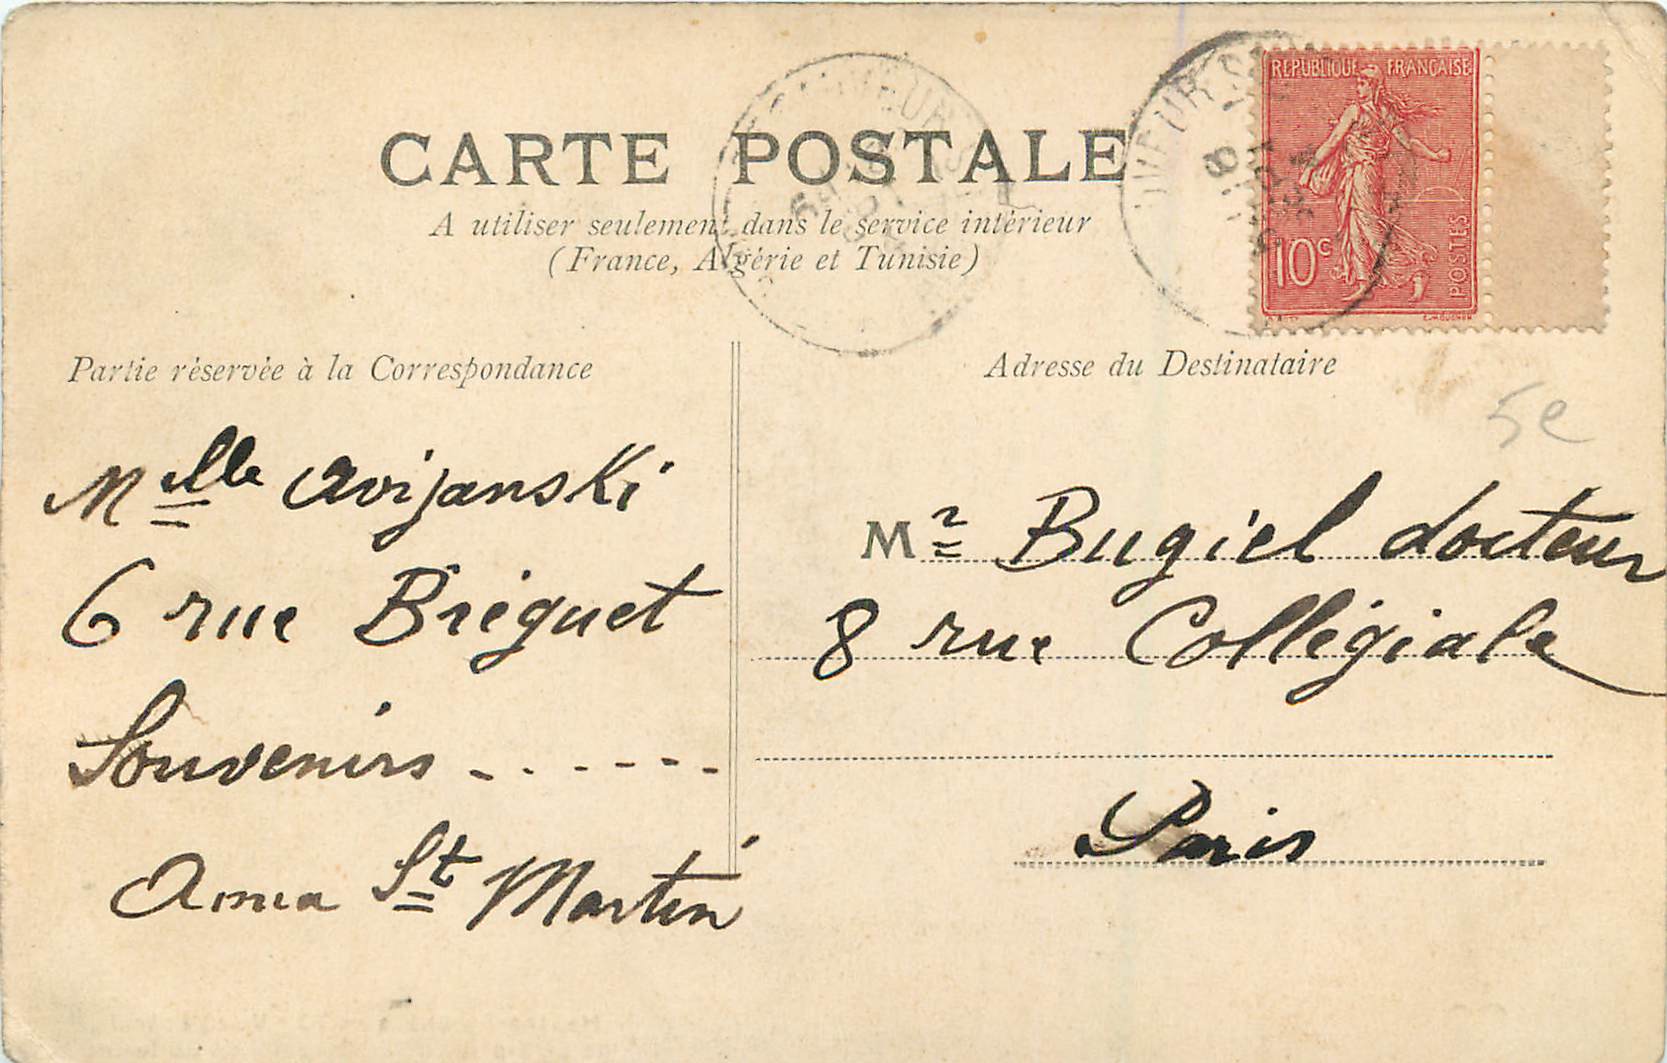 CARTE POSTALE
A utiliser seulement dans le service intérieur
(France, Algérie et Tunisie)
REPUBLIQUE FRANÇAISE
10c
POSTES
Partie réservée à la Correspondance
Mlle Avijanski
6 rue Bréguet
Souvenirs - . . - - - -
Anna St Martin
Adresse du Destinataire
5e
Mr Bugiel docteur
8 rue Collégiale
Paris